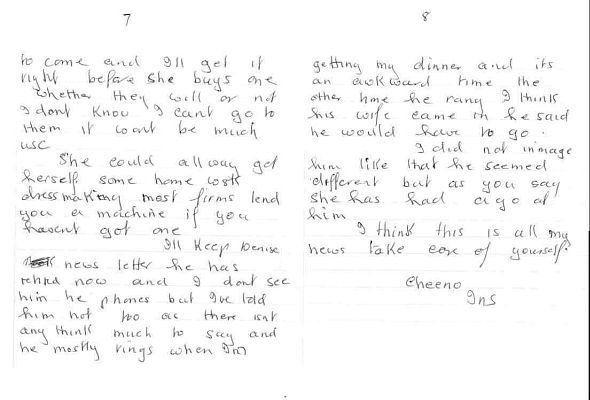 7
to come and Ill get it
right before she buys one
whether they will or not
I dont know I cant go to
them it wont be much
use
She could allway get
herself some home work
dressmaking most firms lend
you a machine if you
havent got one
Ill keep Denise
news letter he has
rehired now and I dont see
him he phones but Ive told
him not too as there isnt
any think much to say and
he mostly rings when Im
8
getting my dinner and its
an awkward time the
other time he rang I think
his wife came in he said
he would have to go.
I did not inmage
him like that he seemed
different but as you say
she has had a go at
him
I think this is all my
news take care of yourself.
Cheeno
Ins